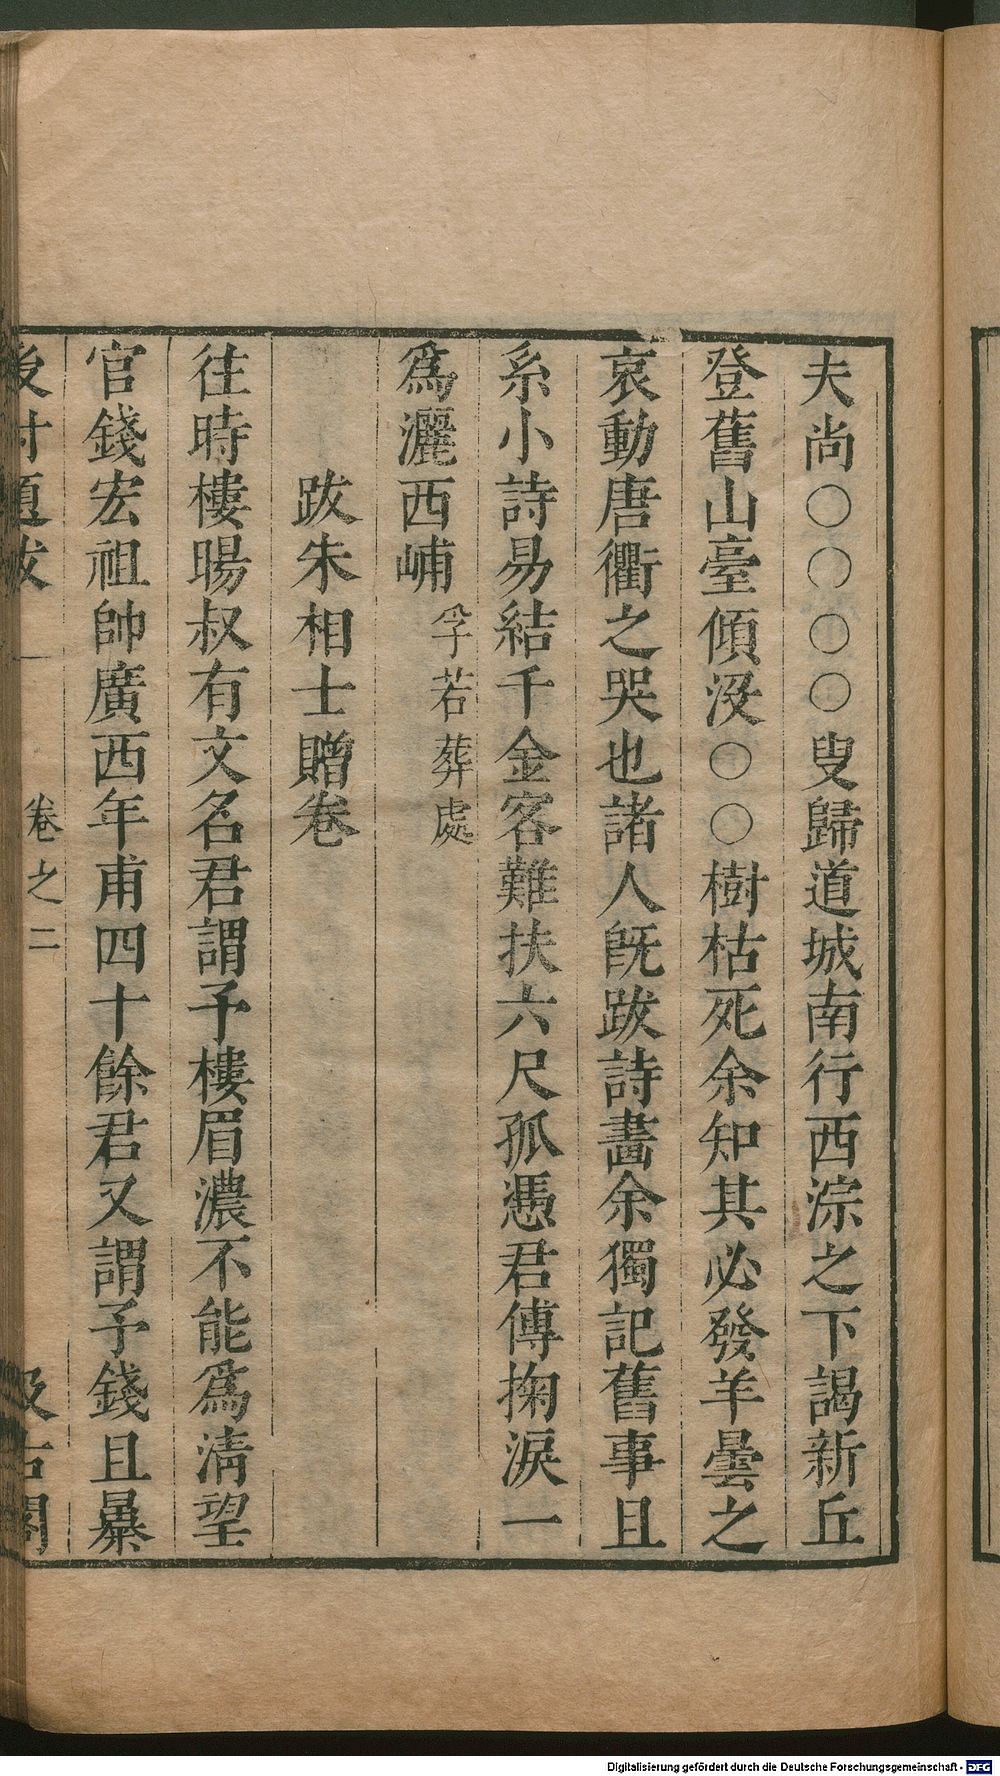 夫尚○○○○叟歸道城南行西淙之下謁新丘
登舊山臺傾沒○○樹枯死余知其必發羊曇之
哀動唐衢之哭也諸人旣跋詩畫余獨記舊事且
系小詩易結千金客難扶六尺孤憑君傳掬淚一
爲灑西峬孚若葬處
跋朱相士贈卷
往時樓暘叔有文名君謂予樓眉濃不能爲淸望
官錢宏祖帥廣西年甫四十餘君又謂予錢且暴
後村題跋 卷之二 汲古閣
Digitalisierung gefördert durch die Deutsche Forschungsgemeinschaft - DFG